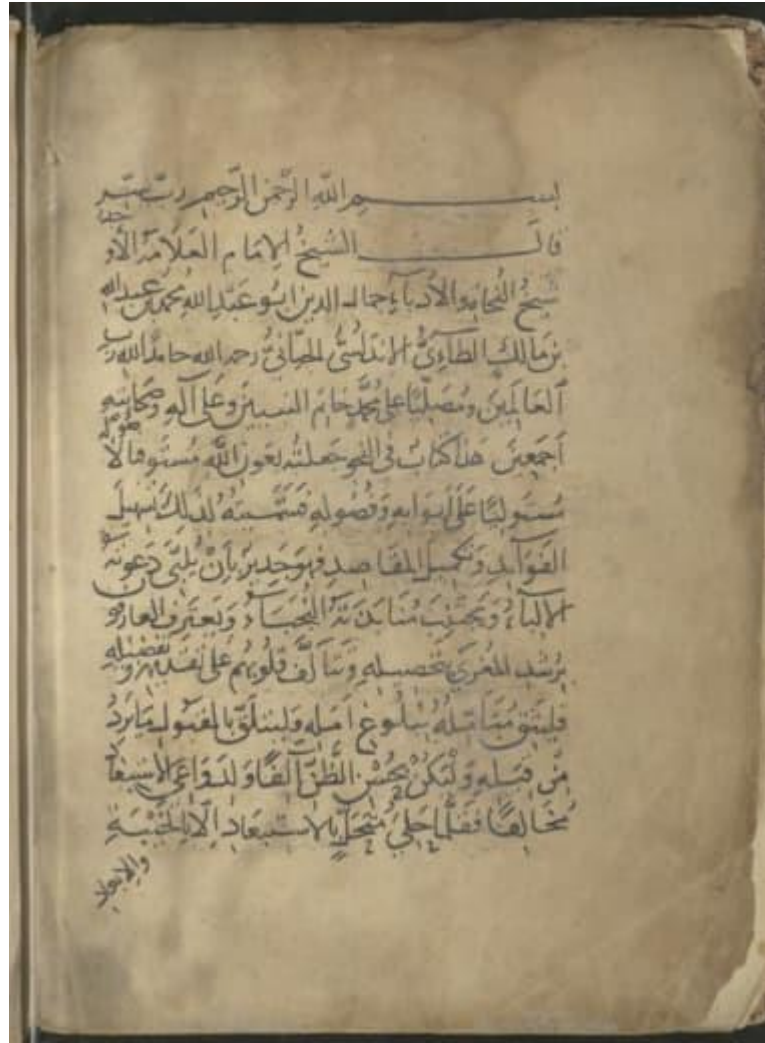 بسم الله الرحمن الرحيم رب يسر
قال الشيخ الإمام العلامة الأوحد
شيخ النحاة والأدباء جمال الدين ابو عبد الله محمد بن عبد الله
بن مالك الطاءي الاندلسي الجياني رحمه الله حامدا لله رب
العالمين ومصليا على محمد خاتم النبيين وعلى آله وصحابته
أجمعين هذا كتاب في النحو جعلته بعون الله مستوفيا لأصوله
مستوليا على أبوابه وفصوله فسميته لذلك تسهيل
الفوائد وتكميل المقاصد فهو جدير بأن يلبي دعوته
الألباء ويجتنب منابذته النجباء ويعترف العارفون
برشد المغري بتحصيله وتتألف قلوبهم على تقديمه وتفضيله
فليثق متأمله ببلوغ أمله وليتلق بالقبول ما يرد
من قبله وليكن بحسن الظن آلفا ولدواعي الاستبعاد
مخالفا فقلما حلي متحل بالاستبعاد إلا بالخيبة
والإبعاد